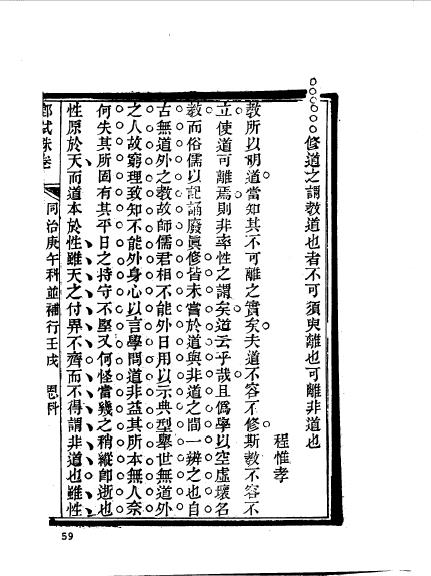 修道之謂教道也者不可須臾離也可離非道也
程惟孝
教所以明道當知其不可離之實矣夫道不容不修斯教不容不
立使道可離焉則非率性之謂矣道云乎哉且僞學以空虛壞名
教而俗儒以記誦廢眞修皆未嘗於道與非道之間一辨之也自
古無道外之教故師儒君相不能外日用以示典型舉世無道外
之人故窮理致知不能外身心以言學問道非益其所本無人奈
何失其所固有其平日之持守不堅又何怪當幾之稍縱卽逝也
性原於天而道本於性雖天之付畀不齊而不得謂非道也雖性
鄕試硃卷
同治庚午科並補行壬戌 恩科
59